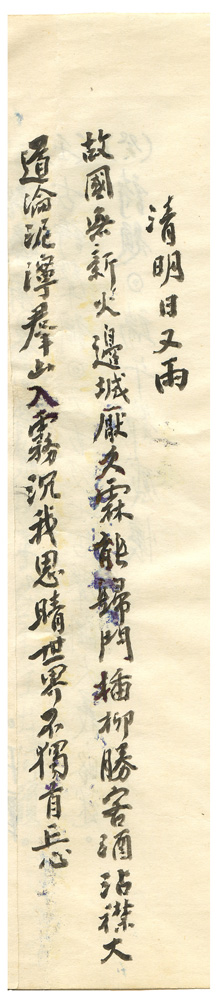 清明日又雨
故國無新火邊城厭久霖能歸門插柳勝客酒沾襟大
道淪泥濘羣山入霧沉我思晴世界不獨首丘心